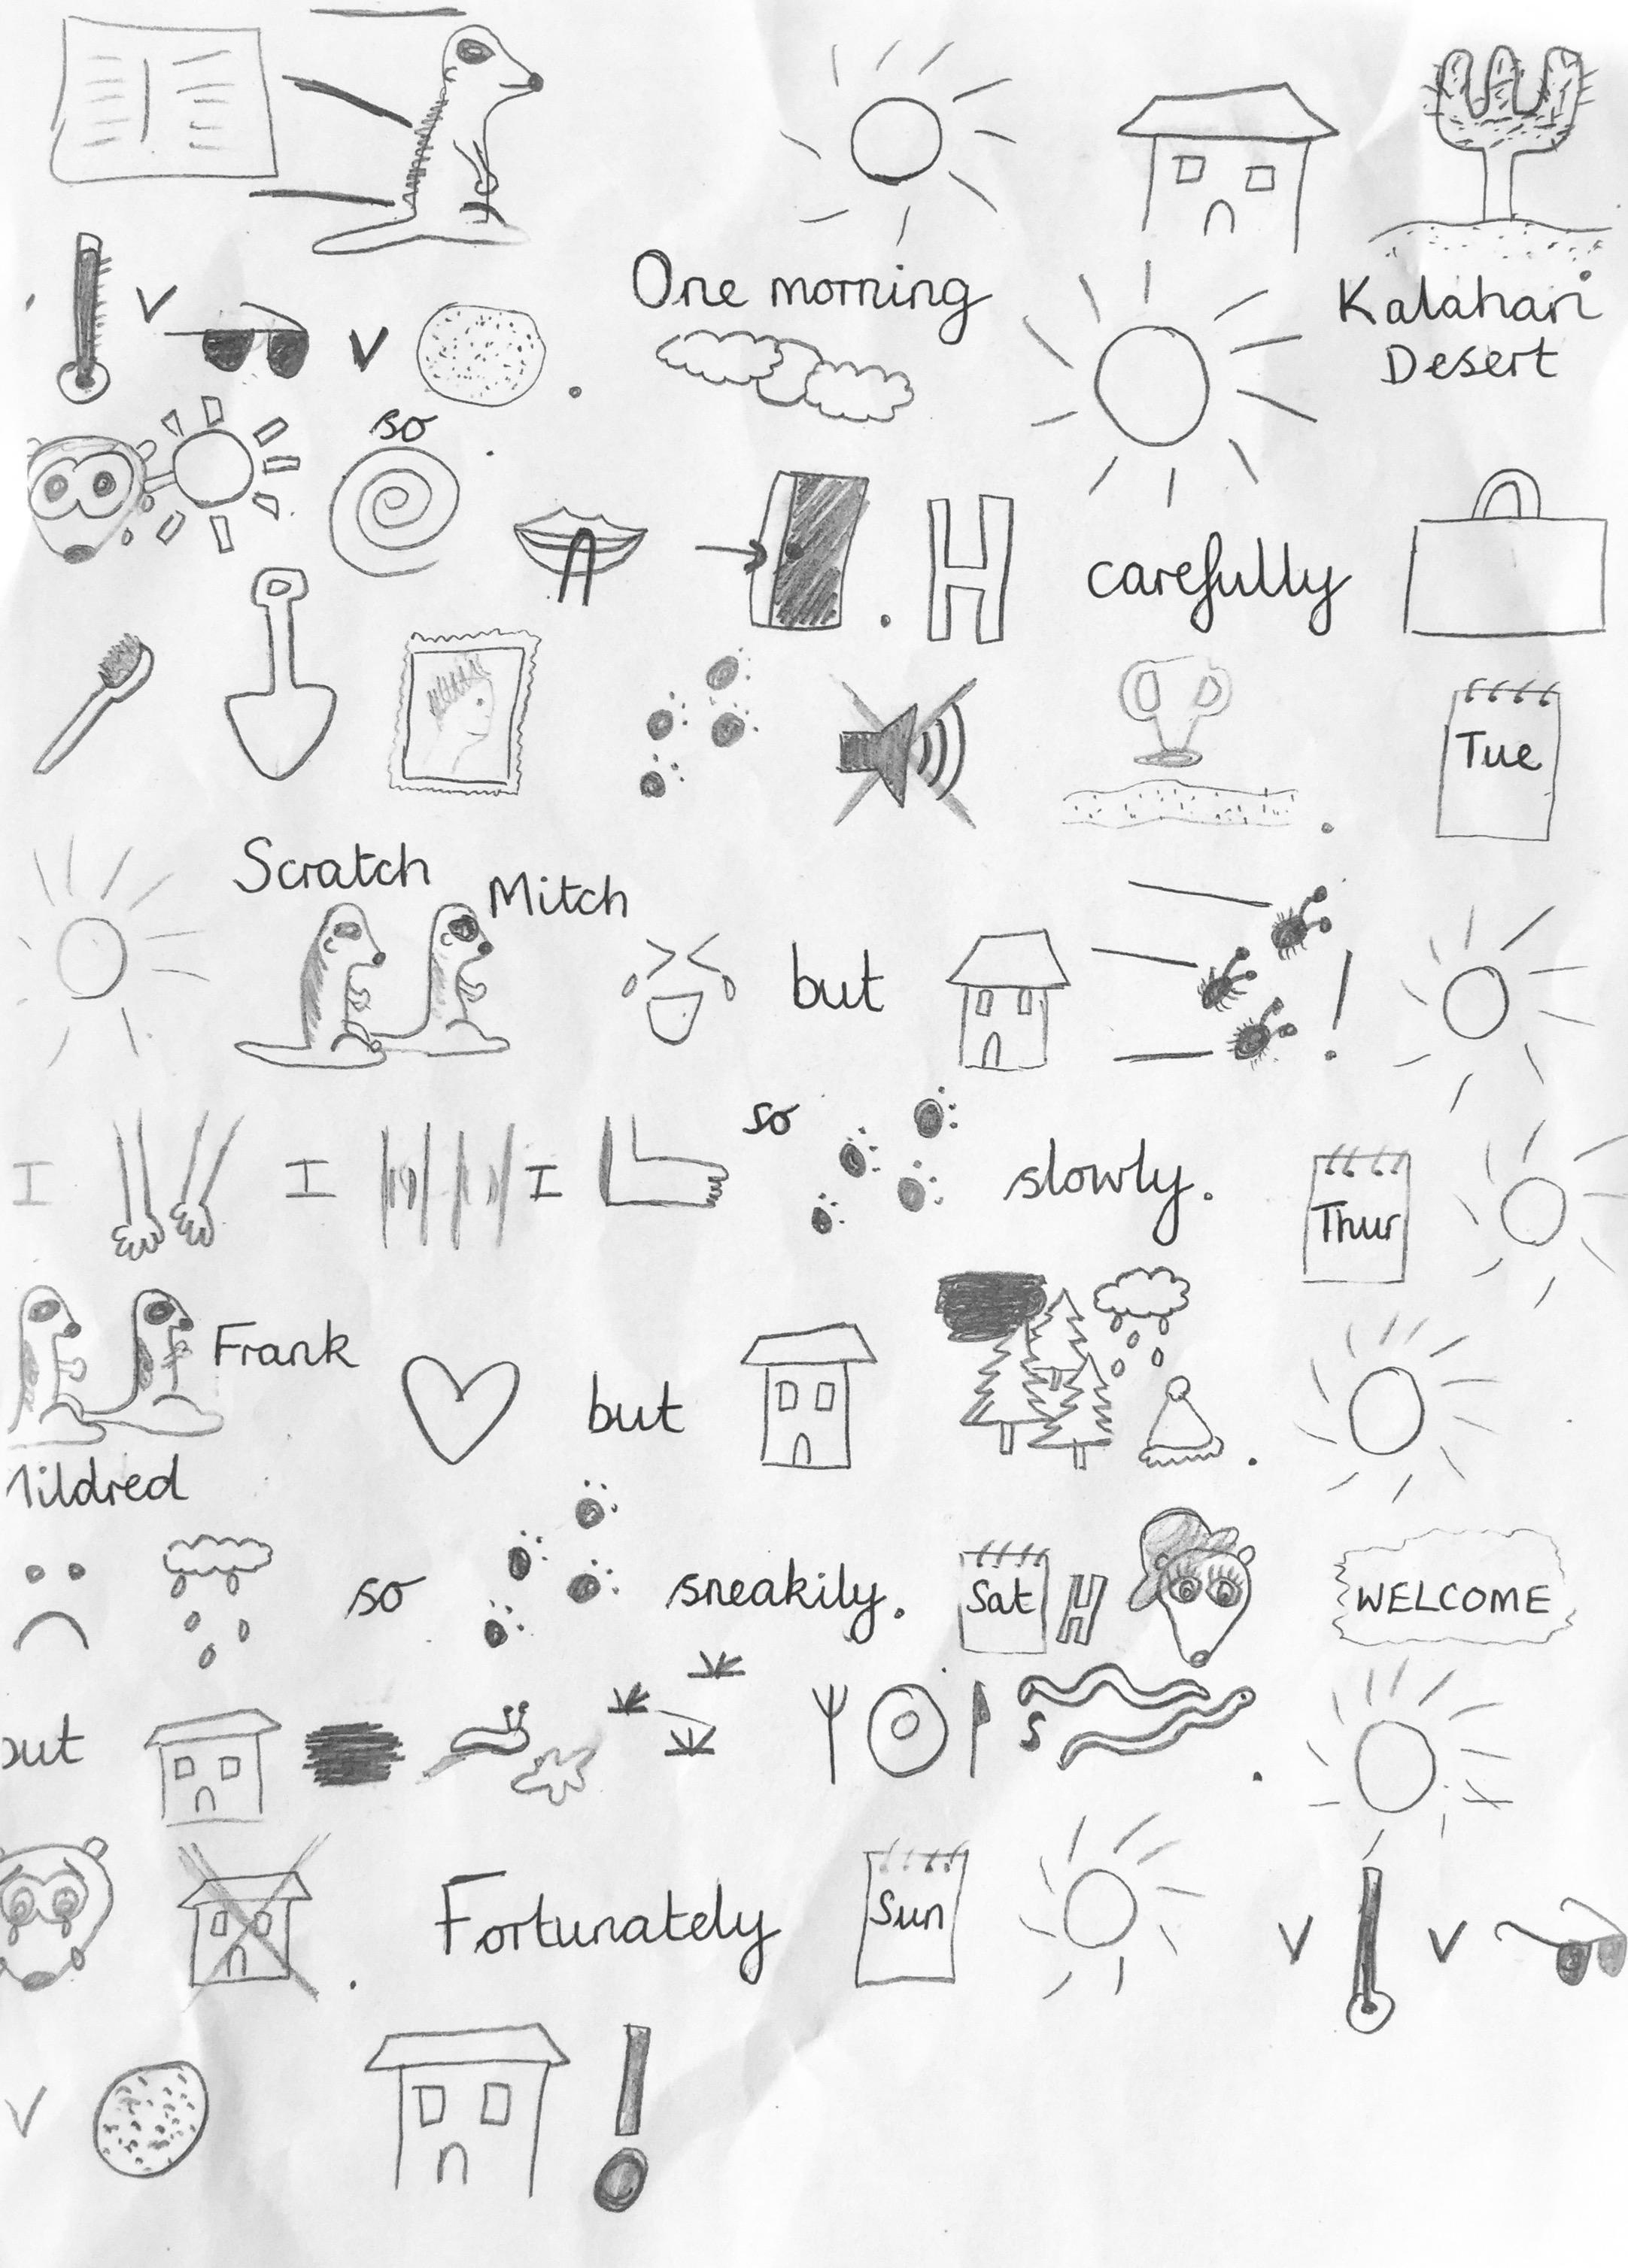 One morning Kalahari
V V . Desert
so
. H carefully
. Tue
Scratch Mitch
but !
I I I so slowly. Thur
Frank but .
Mildred
so sneakily. Sat H WELCOME
but s .
. Fortunately Sun V V
V !